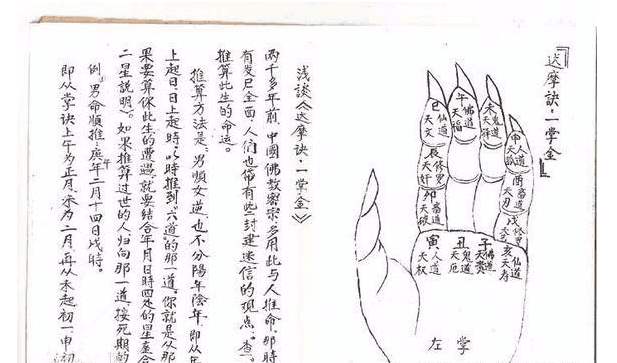 『达摩诀·一掌金
巳仙道天文
午佛道天福
未鬼道天驿
申人道天孤
辰修罗天奸
酉畜道天刃
卯畜道天破
戌修罗天艺
寅人道天权
丑鬼道天厄
子佛道天贵
亥仙道天寿
左掌
浅谈《达摩诀·一掌金》
两千多年前,中國佛教密宗多用此与人推命,那時
全面,人们也带有些封建迷信的观点。查。
推算此生的命运。
推算方法是:男顺女逆,也不分陽年陰年,即从
上起日,日上起時,以時推到"六道"的那一道,你就是从那
果要算你此生的遭遇,就要结合年月日時四处的星座合
二星説明)。如果推算过世的人归向那一道,按死期的
例:男命順推:庚午年二月十四日戌時。
即从掌诀上午为正月,未为二月,再从未起初一,申初